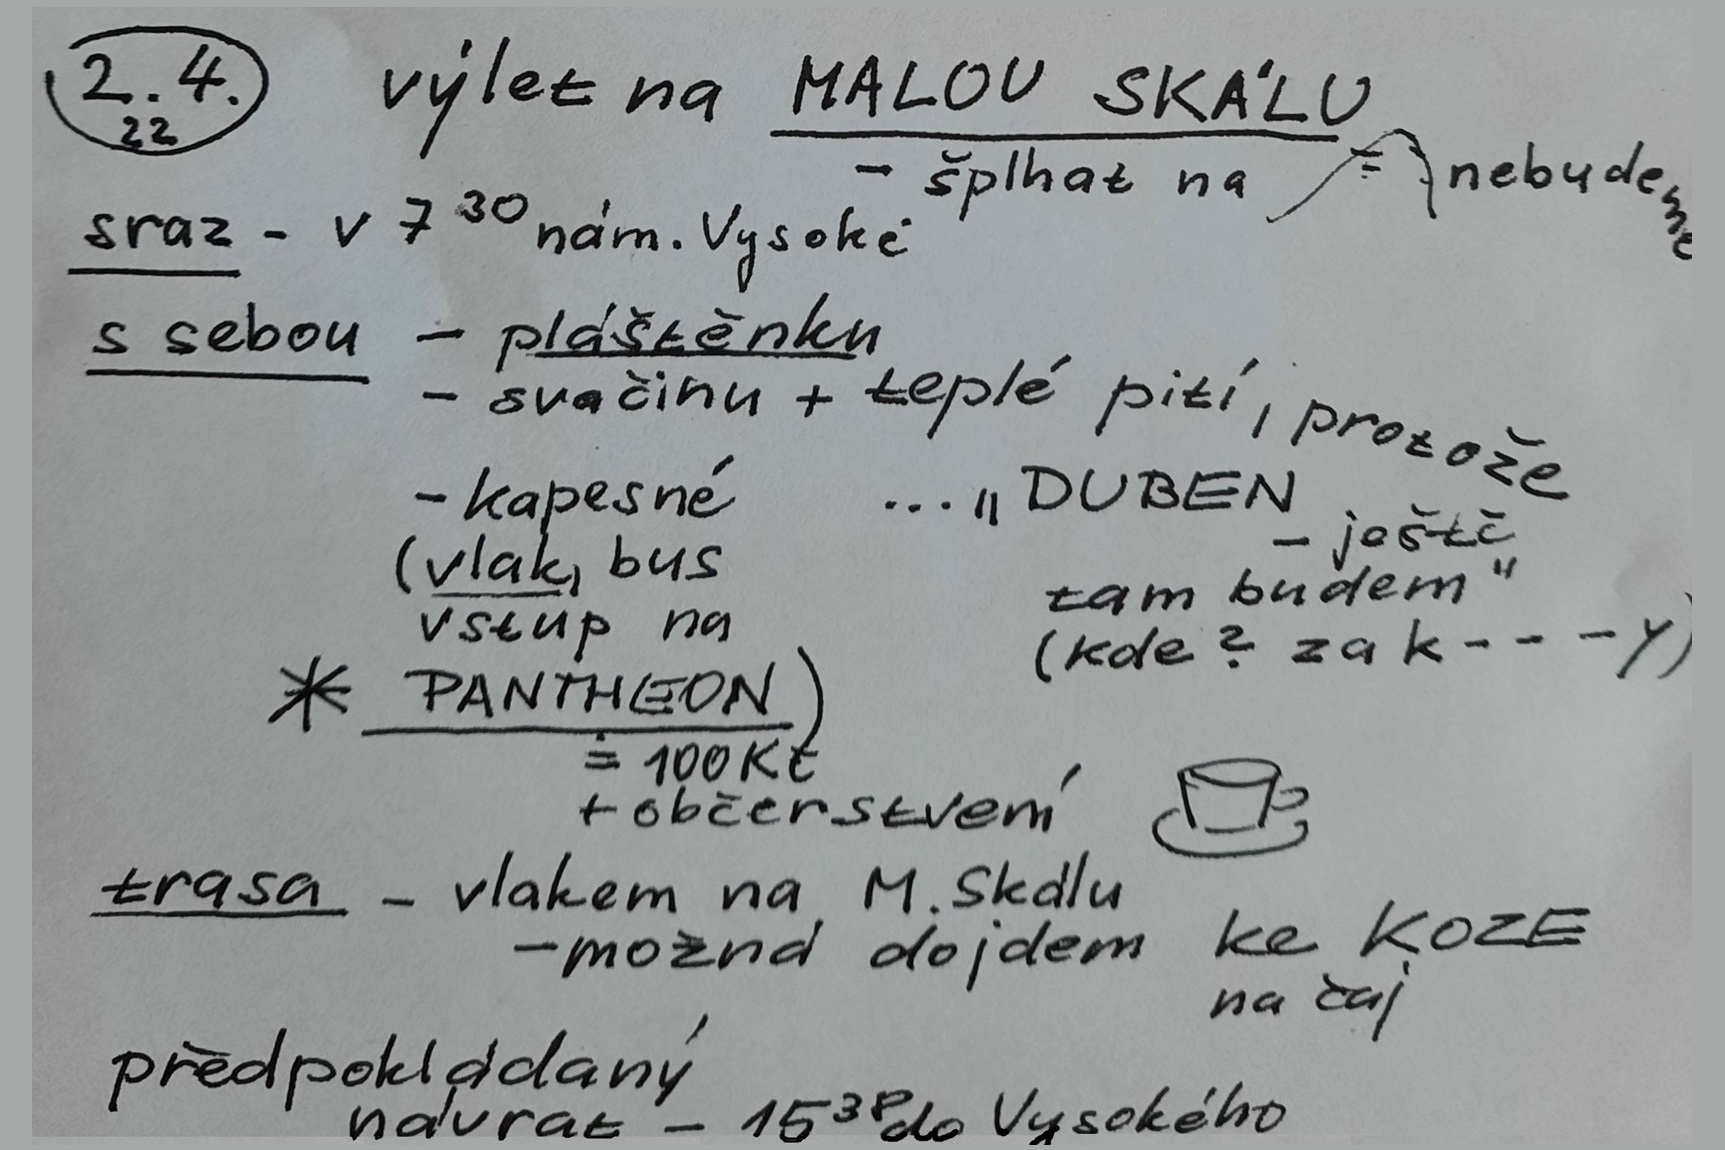 2.4. výlet na MALOU SKÁLU
22
- šplhat na nebudeme
sraz - v 7 30 nám. Vysoké
s sebou - pláštěnku
- svačinu + teplé pití, protože
- kapesné ... „DUBEN
- ještě
(vlak, bus tam budem"
vstup na (kde? za k - - - - y)
* PANTHEON)
= 100 Kč
+ občerstvení
trasa - vlakem na M. Skálu
- možná dojdem ke KOZE
na čaj
předpokládaný
návrat - 15 38 do Vysokého